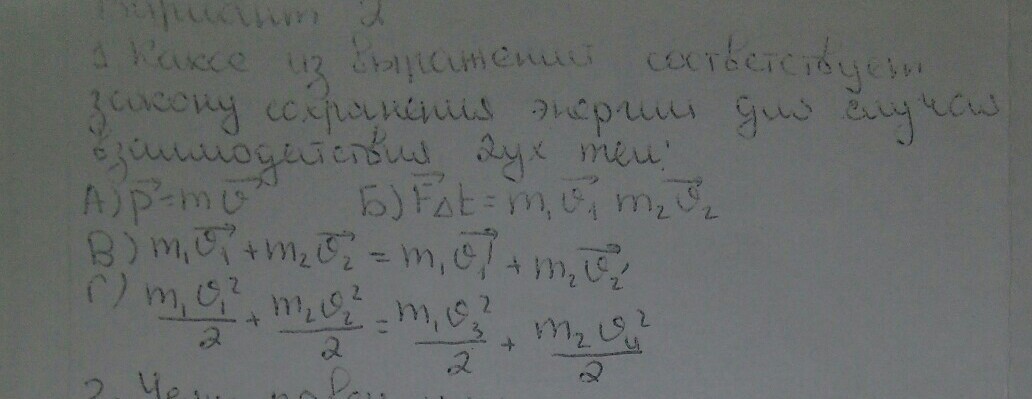 Вариант 2
1 Какое из выражений соответствует
закону сохранения энергии для случая
взаимодействия 2ух тел:
А) p⃗=mv⃗ Б) F⃗Δt=m₁v⃗₁ m₂v⃗₂
В) m₁v⃗₁+m₂v⃗₂=m₁v⃗₁'+m₂v⃗₂'
Г) m₁v₁²/2+m₂v₂²/2=m₁v₃²/2+m₂v₄²/2
2. Чему